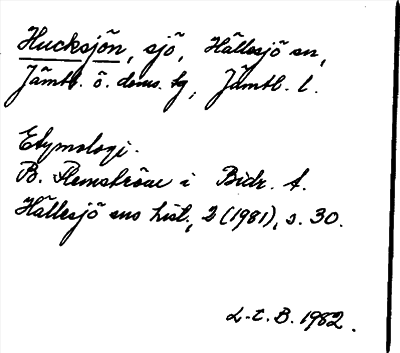 Hucksjön, sjö, Hällesjö sn,
Jämtl. ö. doms. tg, Jämtl. l.
Etymologi.
B. Flemström i Bidr. t.
Hällesjö sns hist., 2 (1981), s. 30.
L-t. B. 1982.